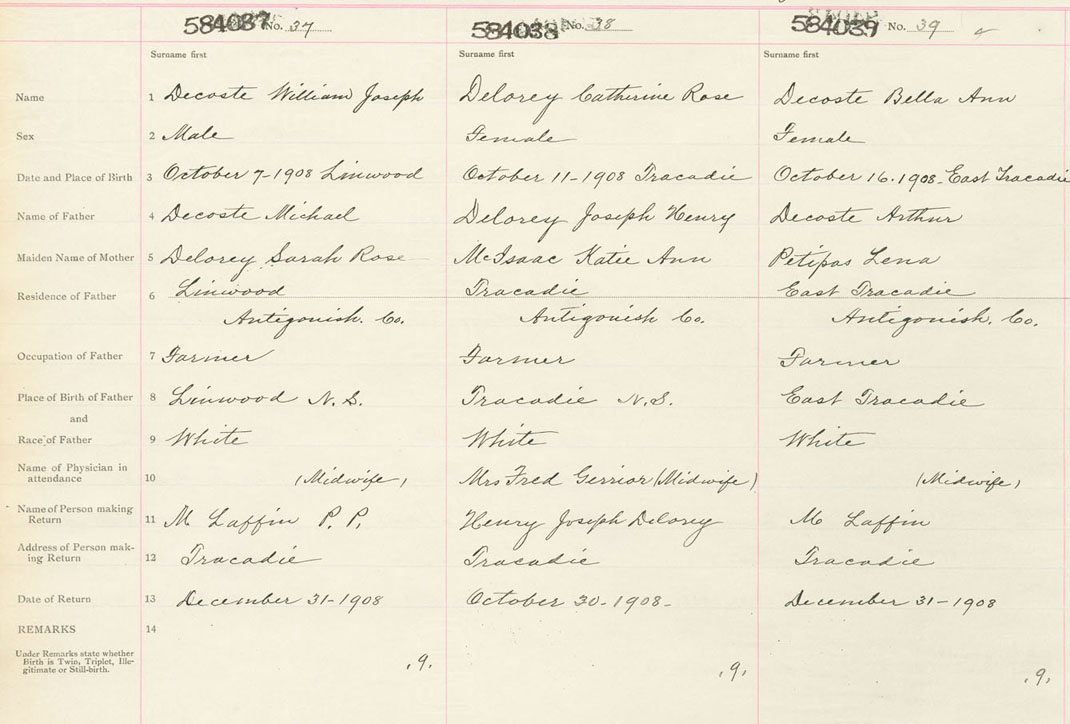 584037 No. 37 584038 No. 38 584039 No. 39
Surname first Surname first Surname first
Name 1 Decoste William Joseph Delorey Catherine Rose Decoste Bella Ann
Sex 2 Male Female Female
Date and Place of Birth 3 October 7-1908 Linwood October 11-1908 Tracadie October 16.1908-East Tracadie
Name of Father 4 Decoste Michael Delorey Joseph Henry Decoste Arthur
Maiden Name of Mother 5 Delorey Sarah Rose McIsaac Katie Ann Petipas Lena
Residence of Father 6 Linwood Tracadie East Tracadie
Antigonish. Co. Antigonish Co. Antigonish. Co.
Occupation of Father 7 Farmer Farmer Farmer
Place of Birth of Father 8 Linwood N.S. Tracadie N.S. East Tracadie
and
Race of Father 9 White White White
Name of Physician in
attendance 10 (Midwife) Mrs Fred Gerrior (Midwife) (Midwife)
Name of Person making
Return 11 M Laffin P.P. Henry Joseph Delorey M Laffin
Address of Person mak-
ing Return 12 Tracadie Tracadie Tracadie
Date of Return 13 December 31-1908 October 30-1908- December 31-1908
REMARKS 14
Under Remarks state whether
Birth is Twin, Triplet, Ille-
gitimate or Still-birth.
.9. .9. .9.